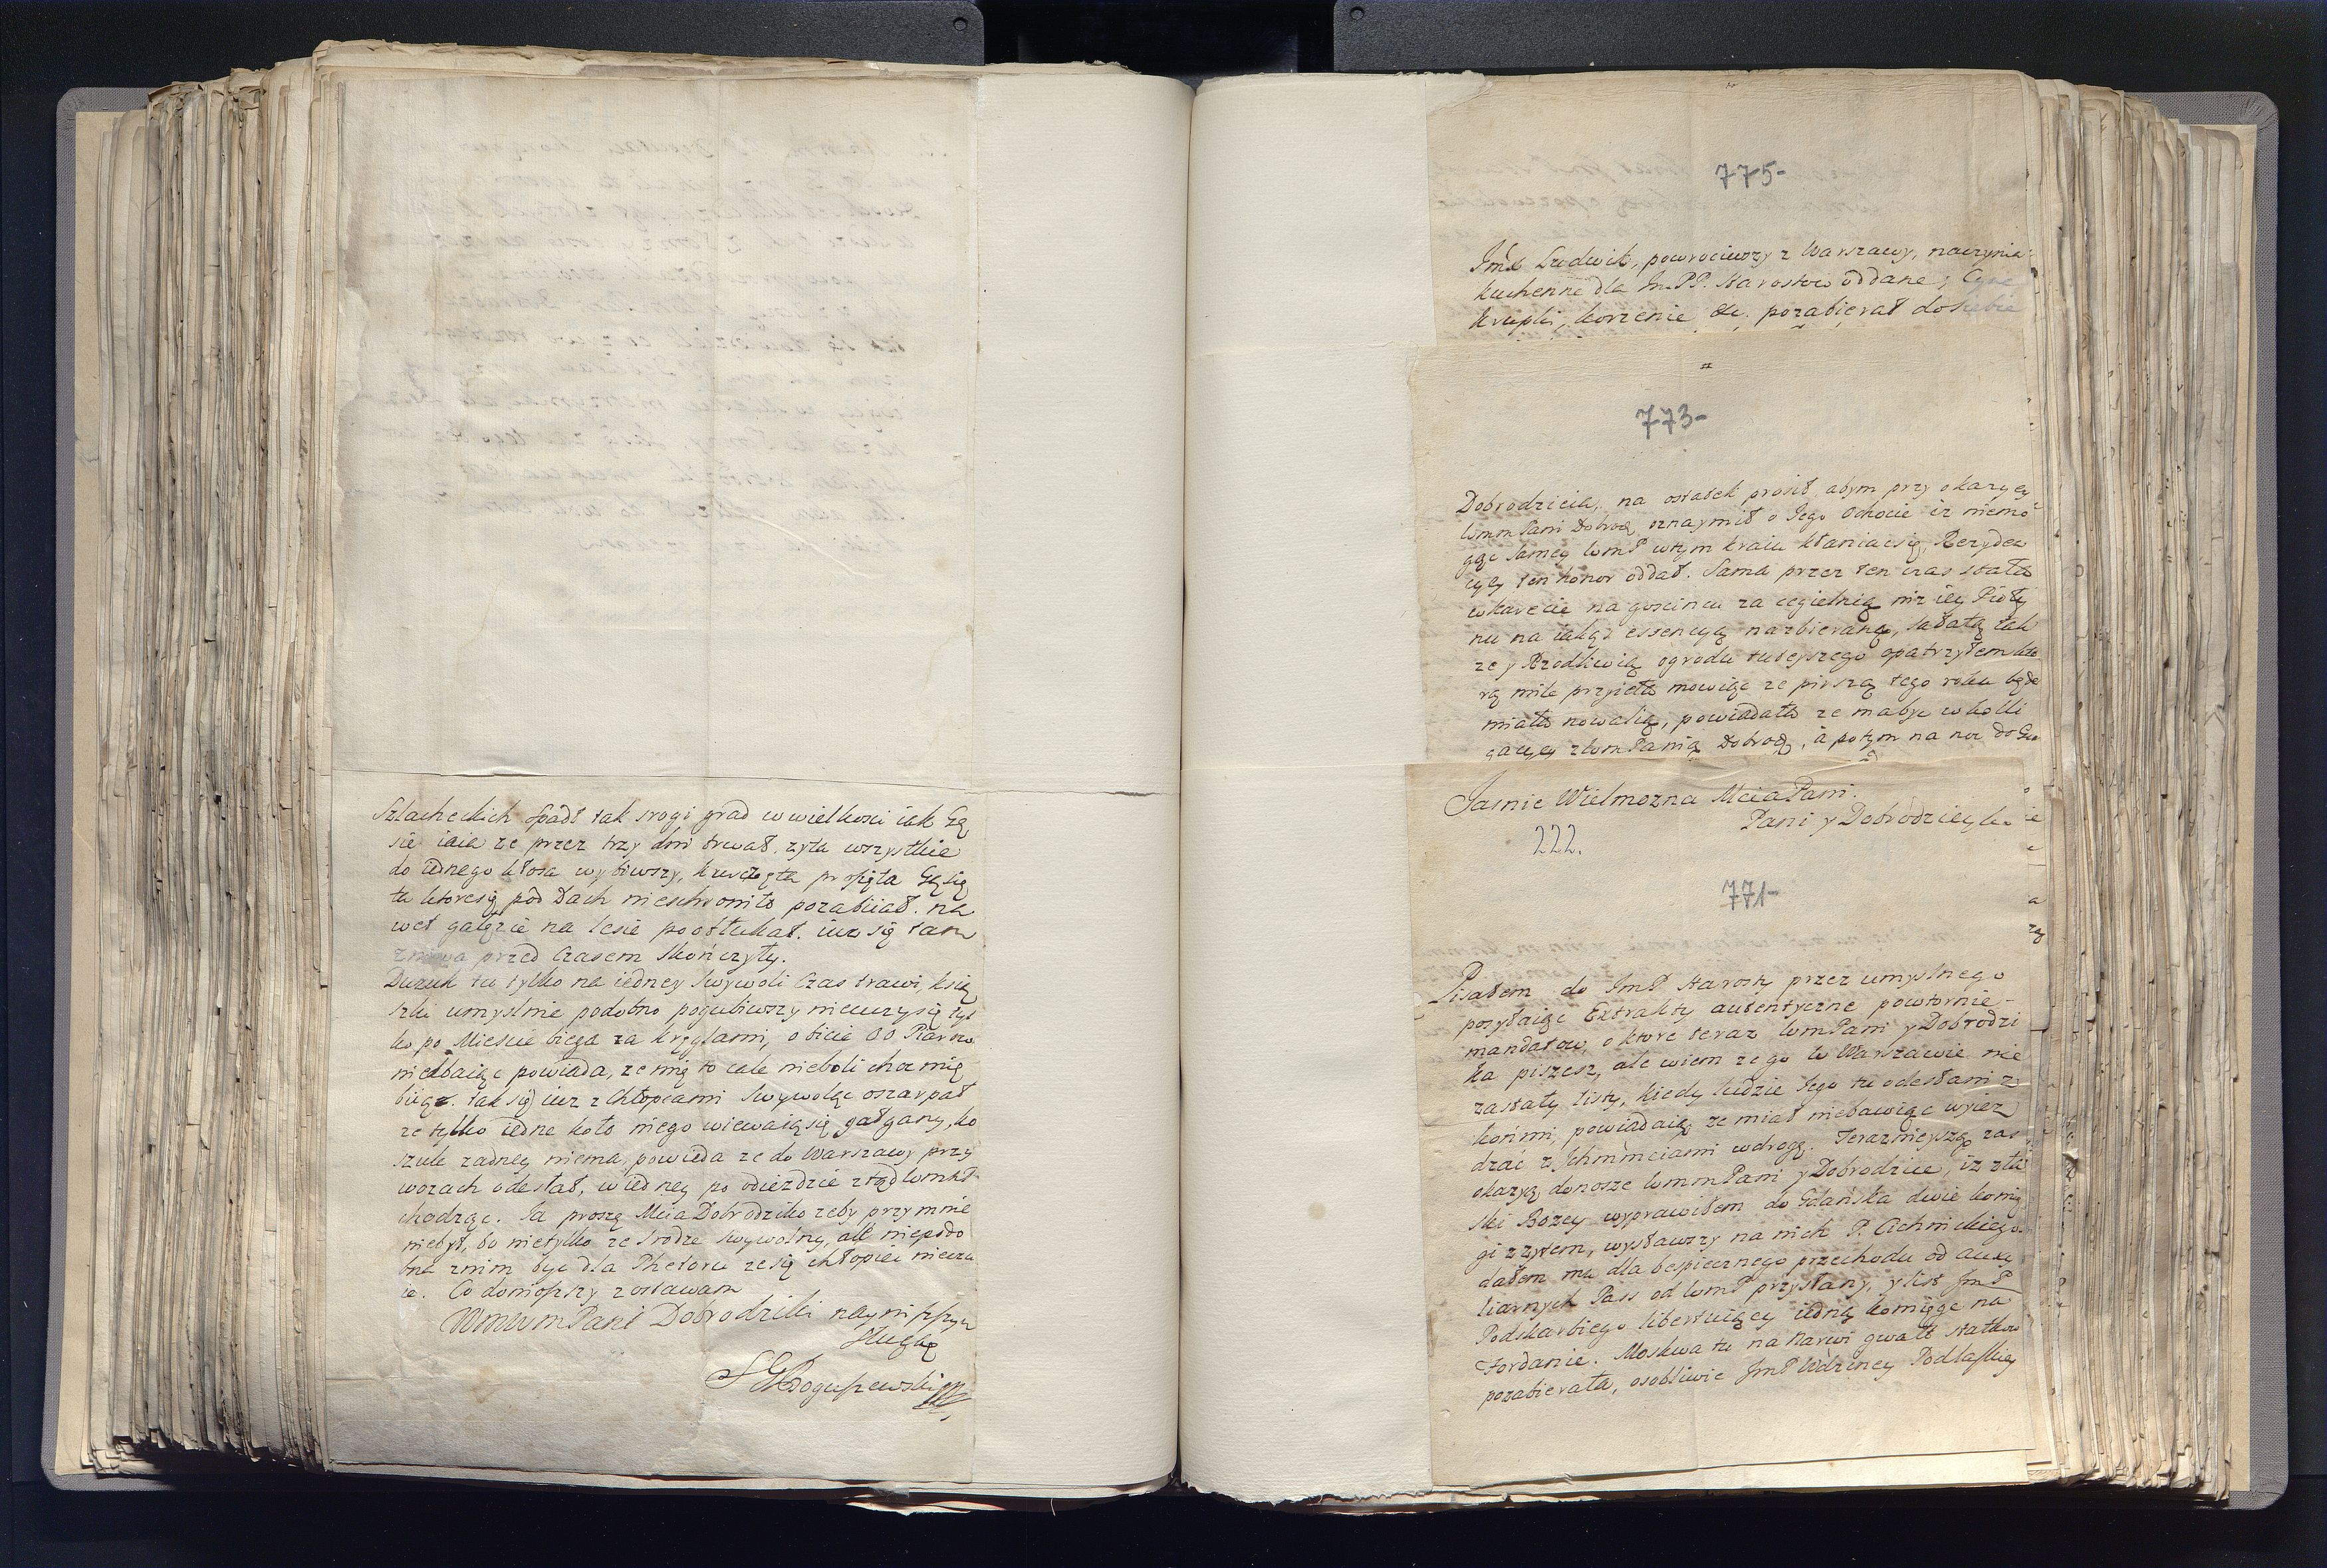 Szlacheckich spadł tak srogi grad wwielkosci iak Gę
sie iaia ze przez trzy dni trwał, zyta wszystkie
do iednego kłosa wybiwszy, kurczęta prosięta Gęsię
ta ktoresię pod Dach nieschroniło pozabiiał. na
wet gałęzie na lesie poobtłukał. iuz się tam
zniwa przed Czasem skończyły.
Duzuk tu tylko na iedney swywoli Czas trawi, ksią
szki umyslnie podobno pogubiwszy nieuczysię tyl
ko po Miescie biega za kręglami, o bicie OO Piarow
niedbaiąc powiada, ze mię to cale nieboli choc mię
biią. tak się iuz z Chłopcami swywoląc oszarpał
ze tylko iedne koło niego wiewaią się gałgany, ko
szule zadney niema, powieda ze do Warszawy przy
wozach odesłał, w iedney po odiezdzie ztąd
chodząc. Ja proszę Mcia Dobrodziko zeby przymnie
niebył, bo nietylko ze srodze swywolny, ale niepodo
bna znim byc dla Rhetora ze się chłopiec nieczu
ie. Co doniosszy zostawam
WmmPani Dobrodziki naynisszym
Sługą
Boguszewski
775-
Ludwik, powrociwszy z Warszawy, naczynia
kuchenne dla Im.PP. Starostow oddane,
krupki, korzenie &c. pozabierał dosiebie
773-
Dobrodzieia, na ostatek prosił abym przy okazyey
WmmPani Dobrodz. oznaymił o Jego Ochocie iz niemo
gąc samey WmP wtym kraiu kłaniacsię, Rezyden
cyey ten honor oddał. Sama przez ten czas stała
wkarecie na goscincu za cegielnią niz iey Piołu
nu na iakąs essencyą nazbierano, sałatą tak
ze y Rzodkiewią ogrodu tuteyszego opatrzyłem kto
rą mile przyieła mowiąc ze pirszą tego roku będe
miała nowalią, powiadała ze ma byc w kolli
gacyey z WmPanią Dobrodz, a potym na noc do
Jasnie Wielmozna Mcia Pani.
Pani y Dobrodzieyko
222.
771-
Pisałem do JmP Starosty przez umyslnego
posyłaiąc Extrakty autentyczne powtornie
mandatow, o ktore teraz WmPani y Dobrodzi
ka piszesz, ale wiem ze go w Warszawie nie
zastały listy, kiedy ludzie Jego tu odesłani z
końmi, powiadaią ze miał niebawiąc wyiez
dzac z Ichmmciami wdrogę. Terazmieyszą zas
okazyą donosze WmmPani y Dobrodzice, iz z ła
ski Bozey wyprawiłem do Gdańska dwie komię
gi z zytem, wysławszy na nich P. Cichnickiego.
dałem mu dla bespiecznego przechodu od auxy
liarnych Pass od WmP przysłany, y list JmP
Podskarbiego libertuiący iedną komięgę na
Fordanie. Moskwa tu na Narwi gwałt statkow
pozabierała, osobliwie JmP Wdziney Podlaskiey